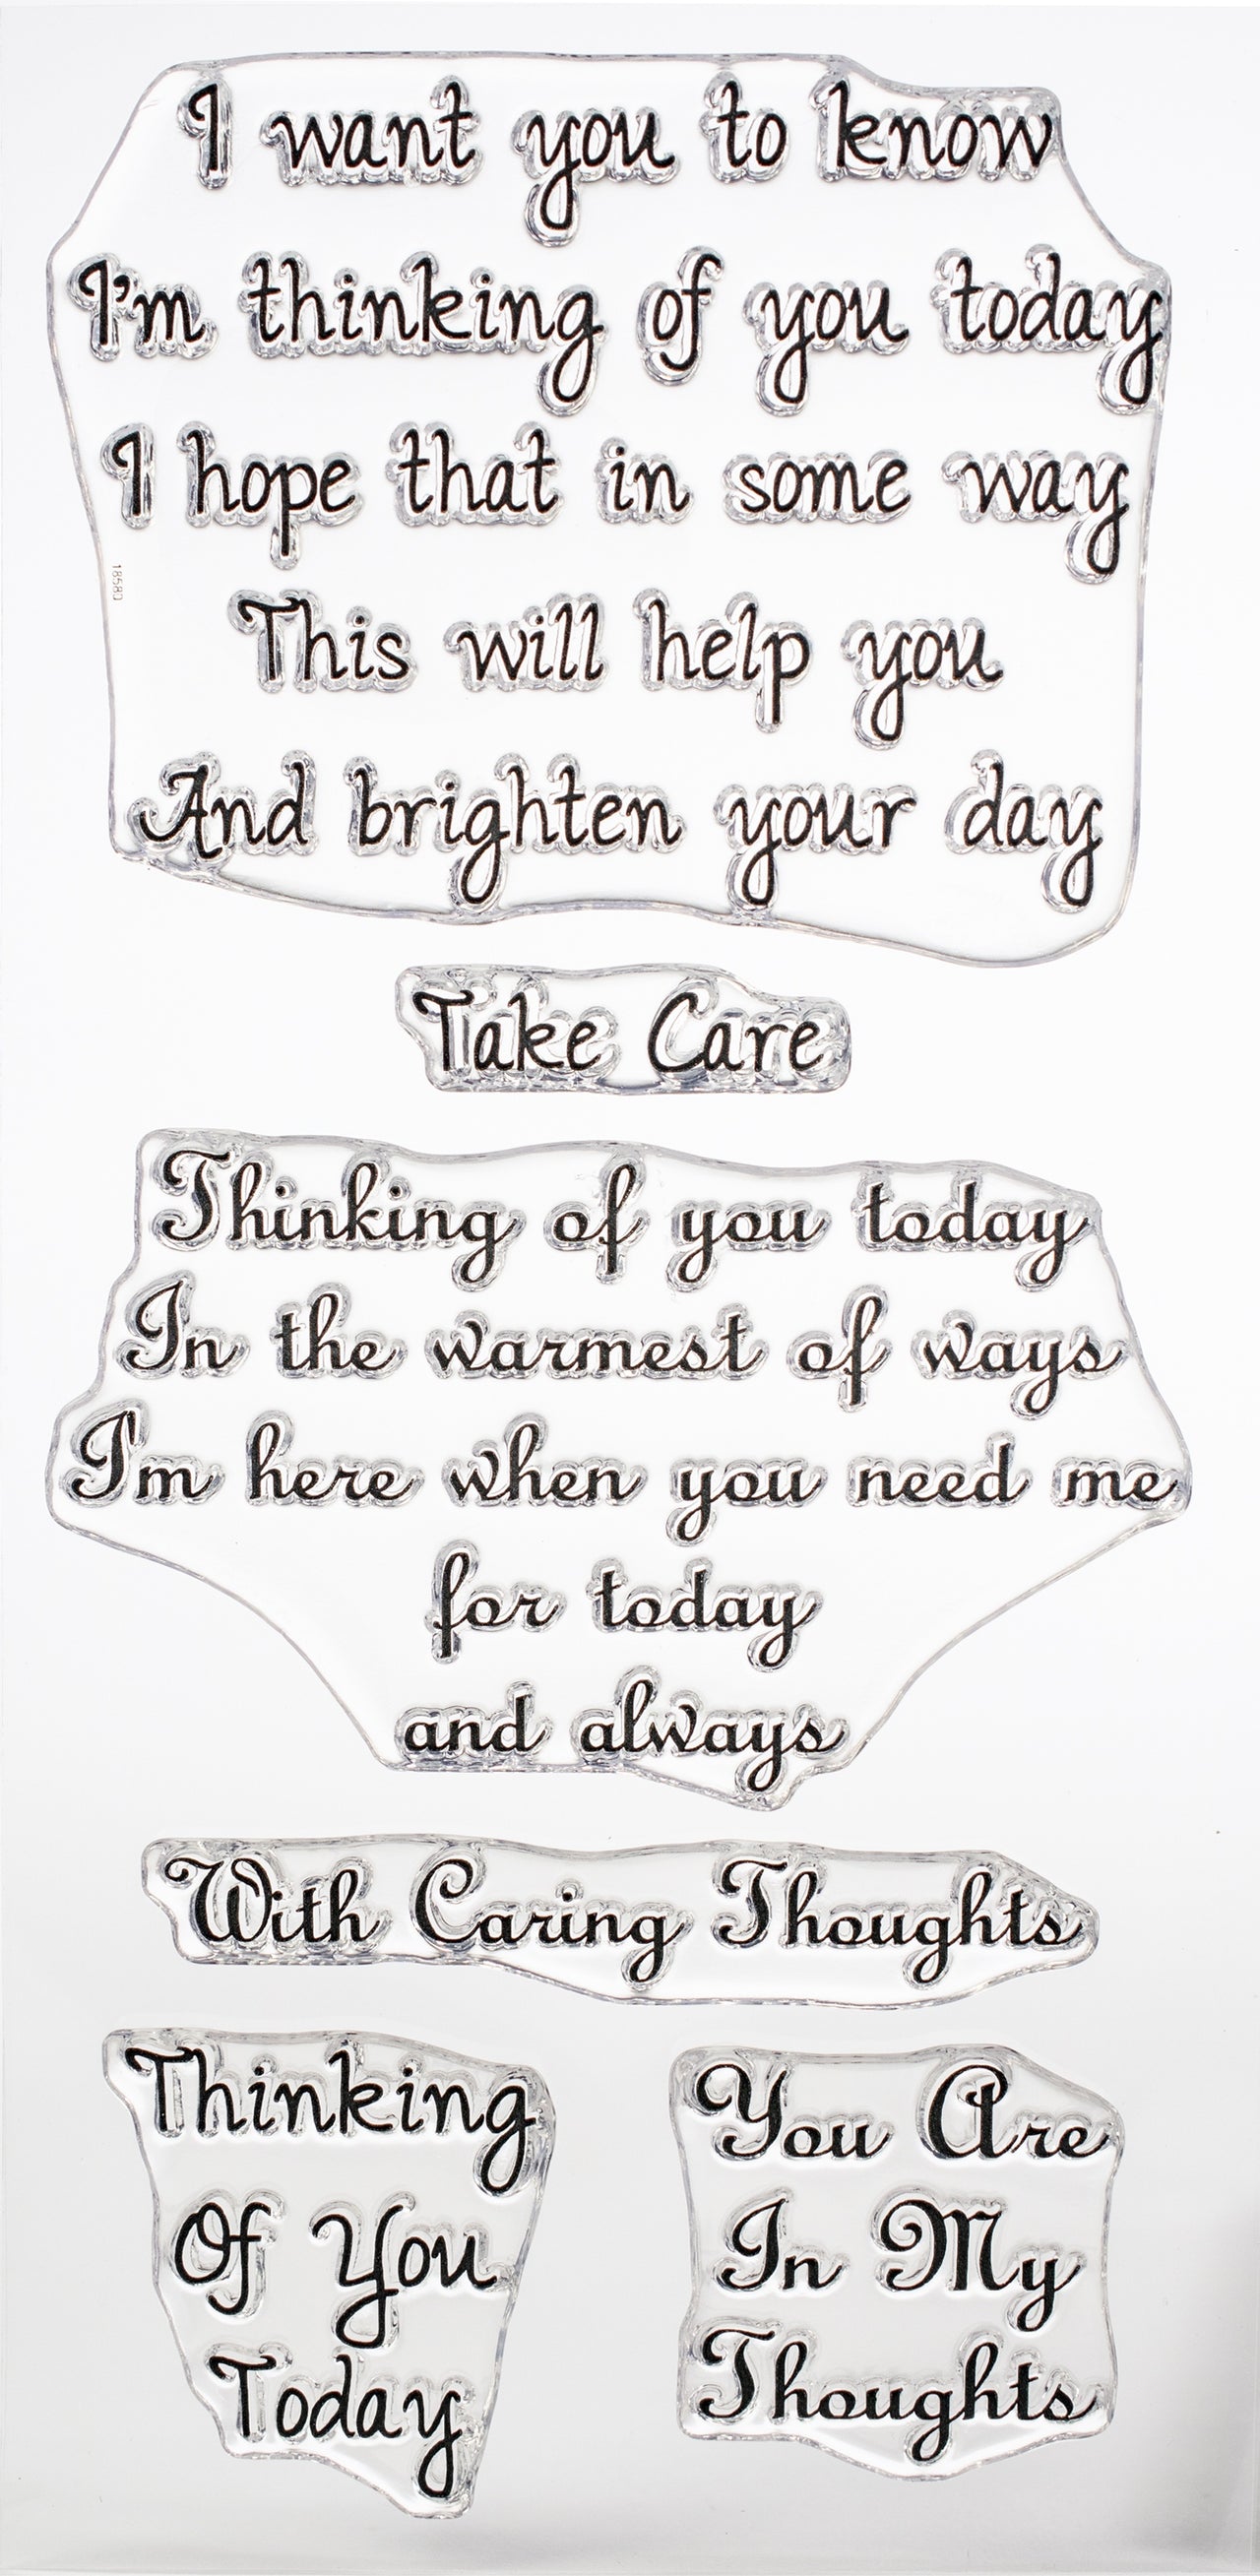 I want you to know
I'm thinking of you today
I hope that in some way
This will help you
And brighten your day
18580
Take Care
Thinking of you today
In the warmest of ways
I'm here when you need me
for today
and always
With Caring Thoughts
Thinking
Of You
Today
You Are
In My
Thoughts